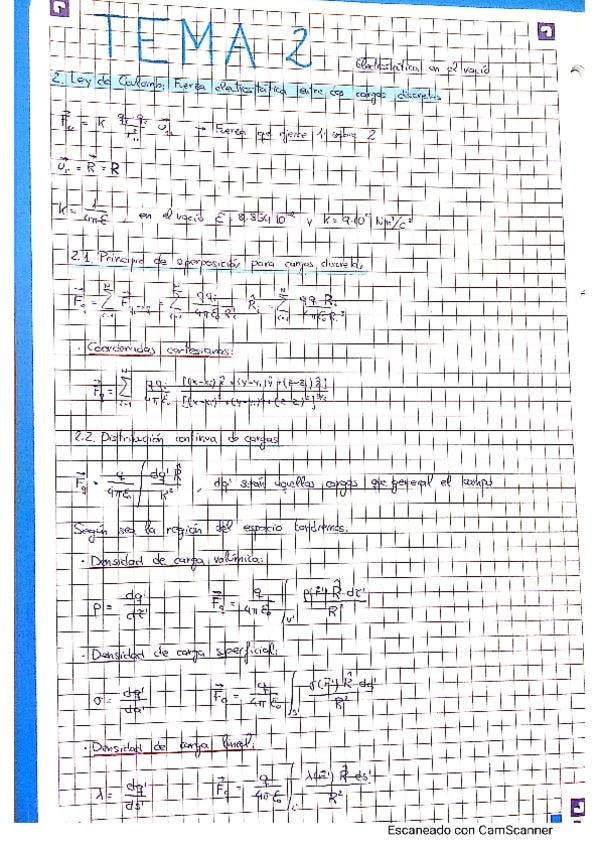 TEMA 2
Electrostática en el vacío
2. Ley de Coulomb: Fuerza electrostática entre dos cargas discretas
F⃗₁₂ = K q₁ q₂ / r²₁₂ û₁₂ → Fuerza que ejerce 1 sobre 2
K = 1/4πε, en el vacío ε = 8,854·10⁻¹² y K = 9·10⁹ Nm²/c²
2.1. Principio de superposición para cargas discretas
F⃗q = Σ F⃗ = Σ qqᵢ/4πε₀Rᵢ² R̂ᵢ = Σ qqᵢ R⃗ᵢ/4πε₀Rᵢ³
· Coordenadas cartesianas:
F⃗q = Σ qqᵢ/4πε₀ [(x-xᵢ)x̂ + (y-yᵢ)ŷ + (z-zᵢ)ẑ] / [(x-xᵢ)² + (y-yᵢ)² + (z-zᵢ)²]^3/2
2.2. Distribución continua de cargas
F⃗q = q/4πε₀ ∫ dq' R̂/R², dq' serán aquellas cargas que general el campo
Según sea la región del espacio tendremos:
· Densidad de carga volúmica:
ρ = dq'/dτ' F⃗q = q/4πε₀ ∫v' ρ(r⃗') R̂ dτ'/R²
· Densidad de carga superficial:
σ = dq'/da' F⃗q = q/4πε₀ ∫s' σ(r⃗') R̂ da'/R²
· Densidad de carga lineal:
λ = dq'/ds' F⃗q = q/4πε₀ ∫ λ(r⃗') R̂ ds'/R²
Escaneado con CamScanner